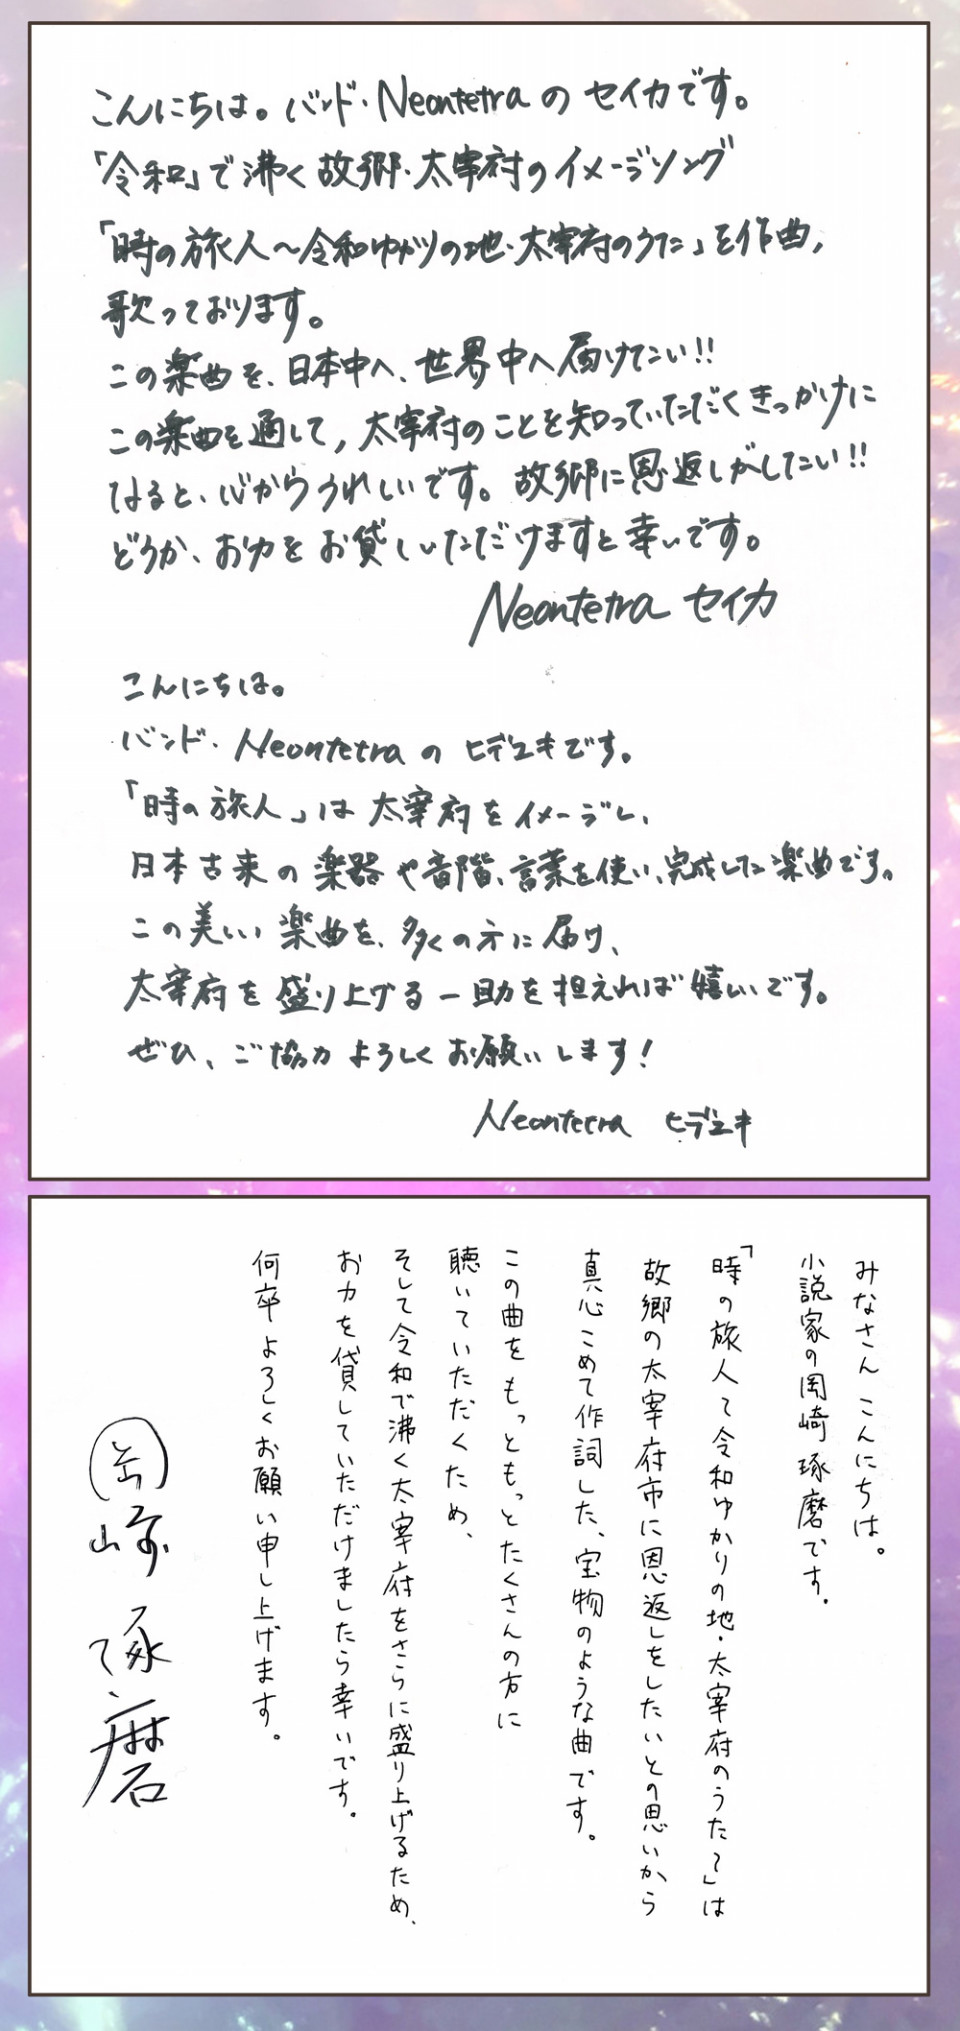 こんにちは。バンド・Neontetraの セイカです。
「令和」で沸く故郷・太宰府のイメージソング
「時の旅人～令和ゆかりの地・太宰府のうた」を作曲,
歌っております。
この楽曲を、日本中へ、世界中へ届けたい!!
この楽曲を通して,太宰府のことを知っていただくきっかけに
なると、心からうれしいです。故郷に恩返しがしたい!!
どうか、お力をお貸しいただけますと幸いです。
Neontetra セイカ
こんにちは。
バンド・Neontetraの ヒデユキです。
「時の旅人」は太宰府をイメージし、
日本古来の楽器や音階、言葉を使い、完成した楽曲です。
この美しい楽曲を、多くの方に届け、
太宰府を盛り上げる一助を担えれば嬉しいです。
ぜひ、ご協力よろしくお願いします!
Neontetra ヒデユキ
みなさん こんにちは。
小説家の岡崎琢磨です。
「時の旅人〜令和ゆかりの地・太宰府のうた〜」は
故郷の太宰府市に恩返しをしたいとの思いから
真心こめて作詞した、宝物のような曲です。
この曲をもっともっとたくさんの方に
聴いていただくため、
そして令和で沸く太宰府をさらに盛り上げるため、
お力を貸していただけましたら幸いです。
何卒よろしくお願い申し上げます。
岡崎琢磨